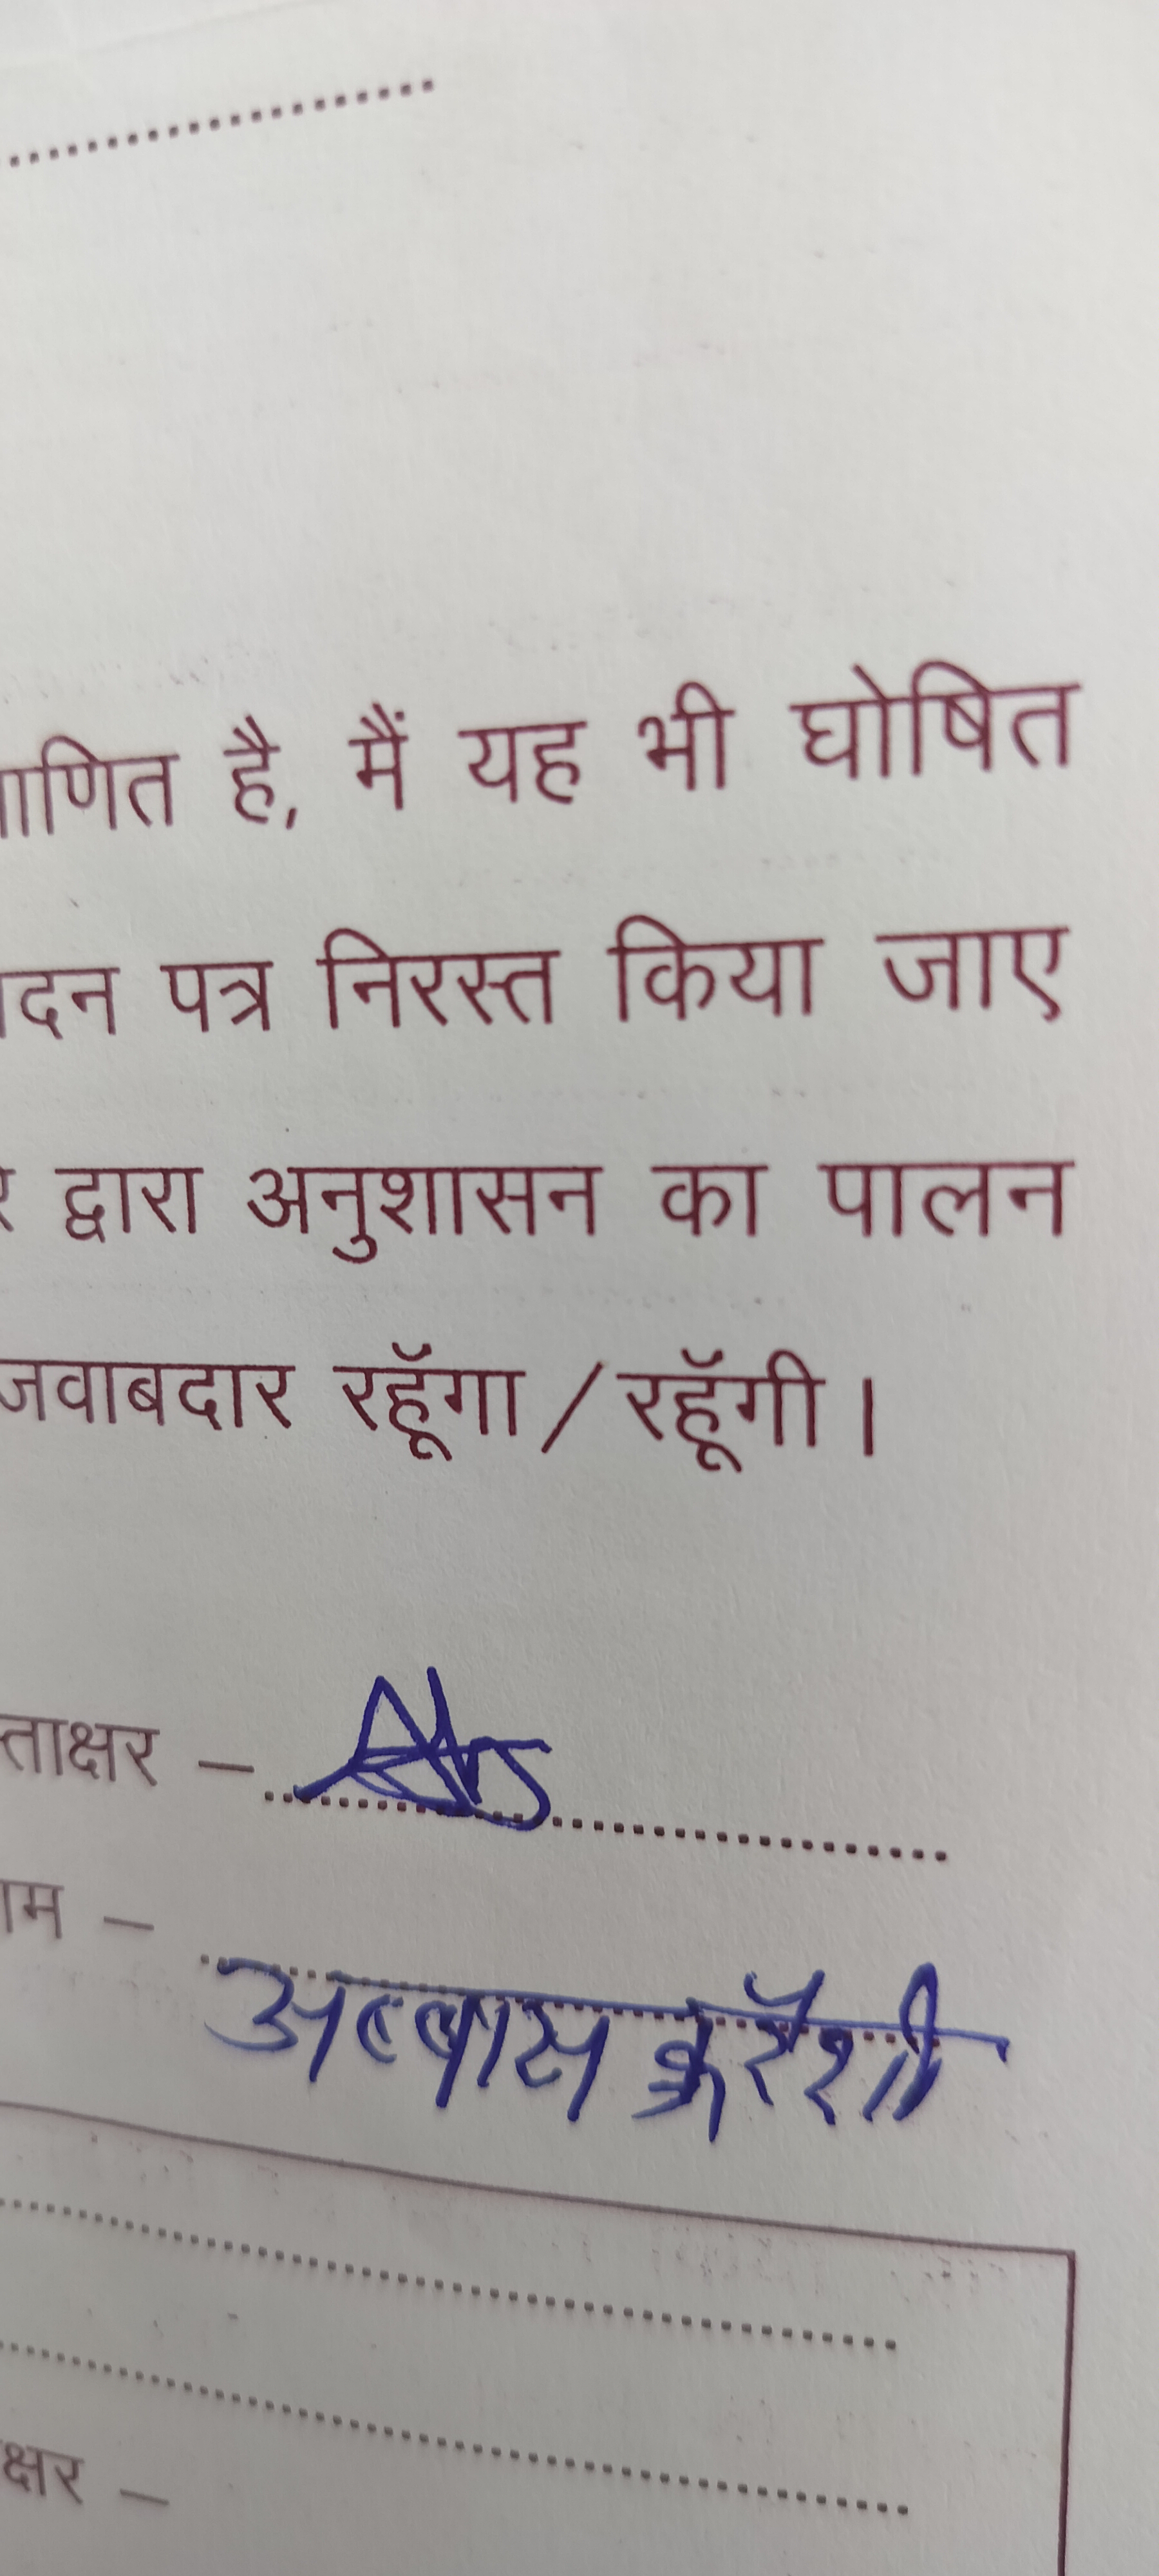 ाणित है, मैं यह भी घोषित
दन पत्र निरस्त किया जाए
द्वारा अनुशासन का पालन
जवाबदार रहूँगा / रहूँगी।
ताक्षर –
ाम –
अब्बास कुरैशी
क्षर –